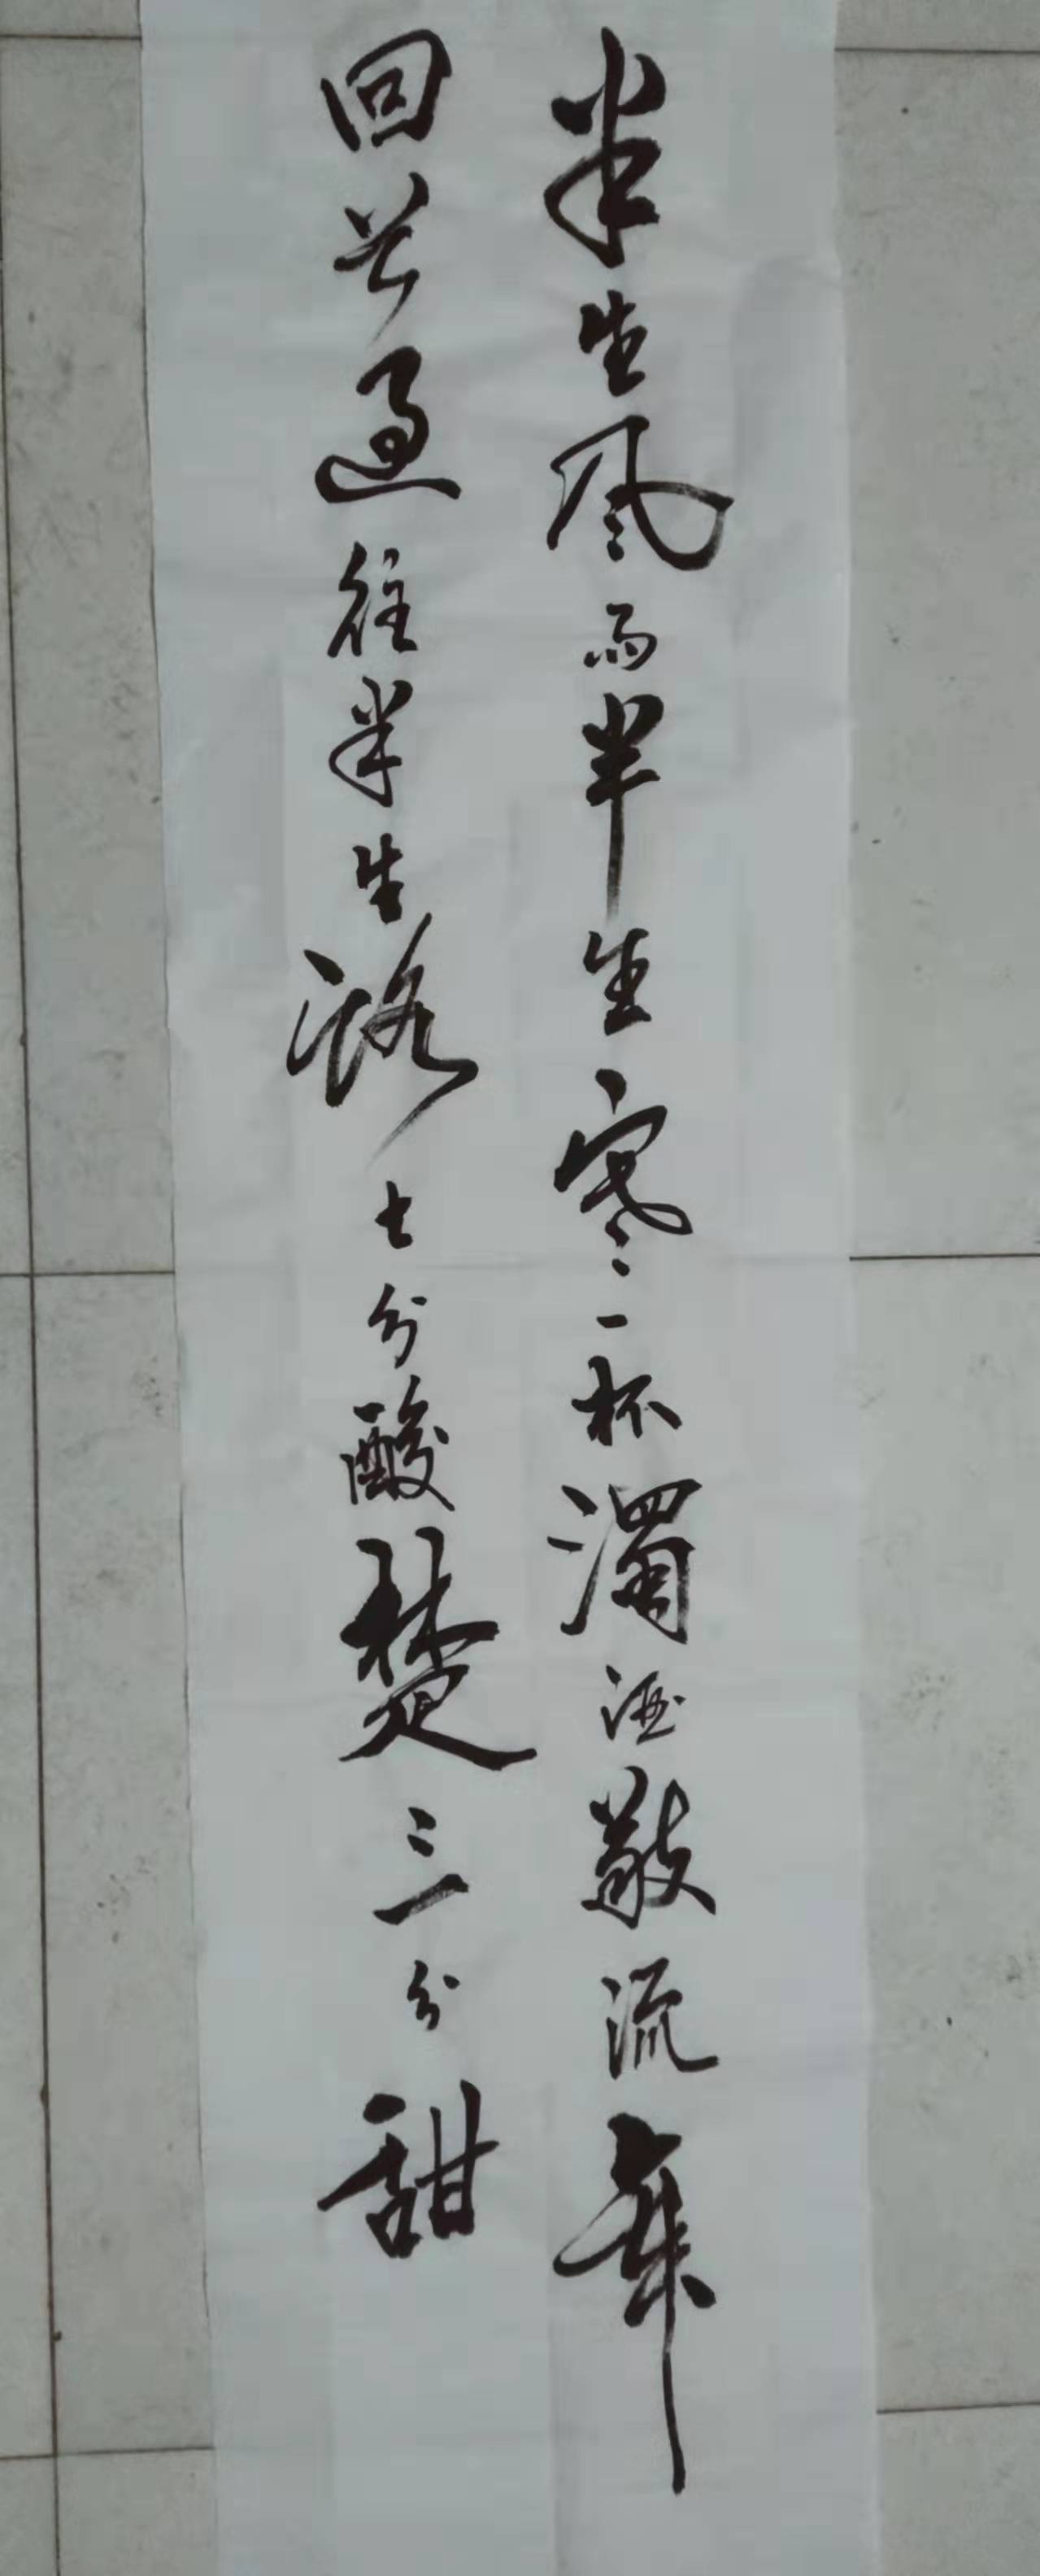 半生风雨半生寒一杯浊酒敬流年
回首过往半生路七分酸楚三分甜